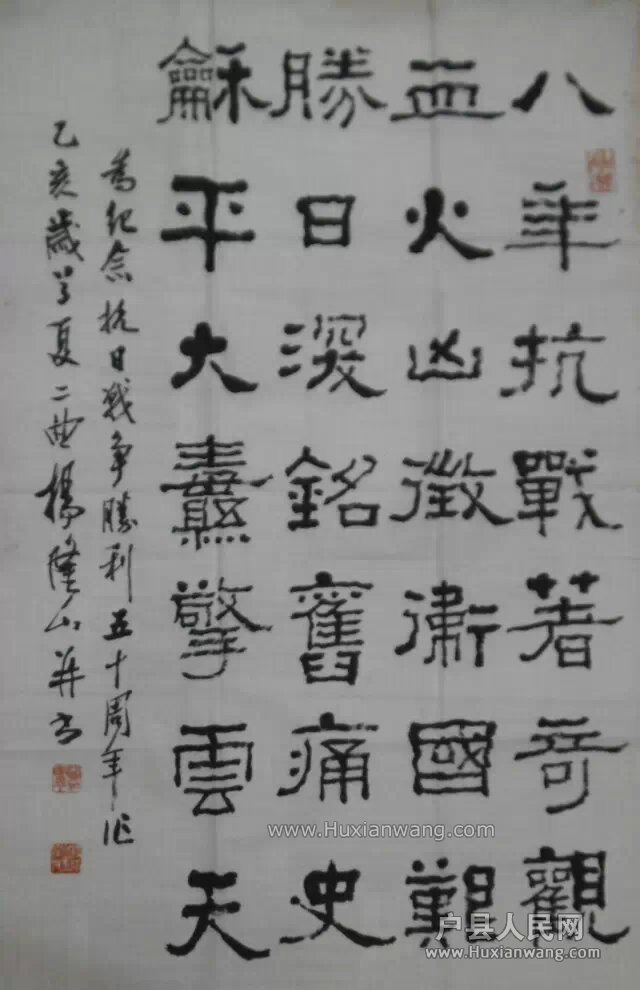 八年抗戰著奇觀
血火凶徵衛國艱
勝日深銘舊痛史
龢平大纛擎雲天
為紀念抗日戰争勝利五十周年作
乙亥歲首夏二曲楊隆山并书
www.Huxianwang.com
户县人民网
www.Huxianwang.com